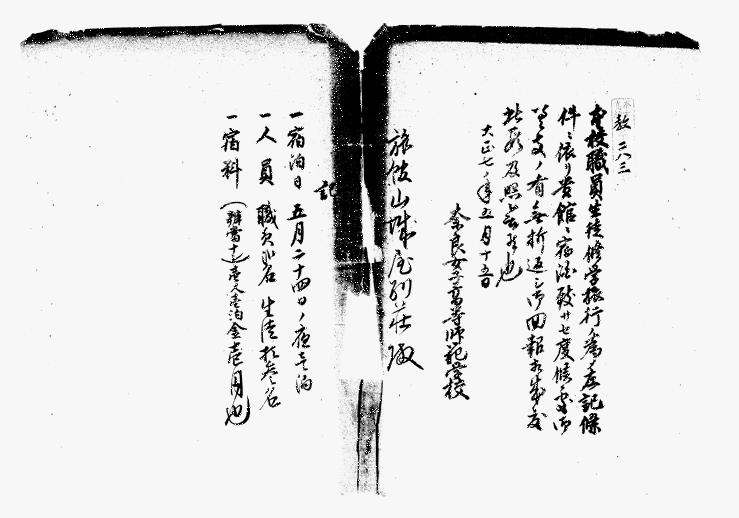 教二八三
本校職員生徒修学旅行ノ為メ左記條
件ニ依リ貴館ニ宿泊致サセ度候条御
差支ノ有無折返シ御回報相成度
此段及照会候也
大正七年五月十五日
奈良女子高等師範学校
旅館山城屋別荘御中
記
一宿泊日 五月二十四日ノ夜壱泊
一人員 職員 名 生徒 拾 名
一宿料 (辨當十也)壱人壱泊金壱円也